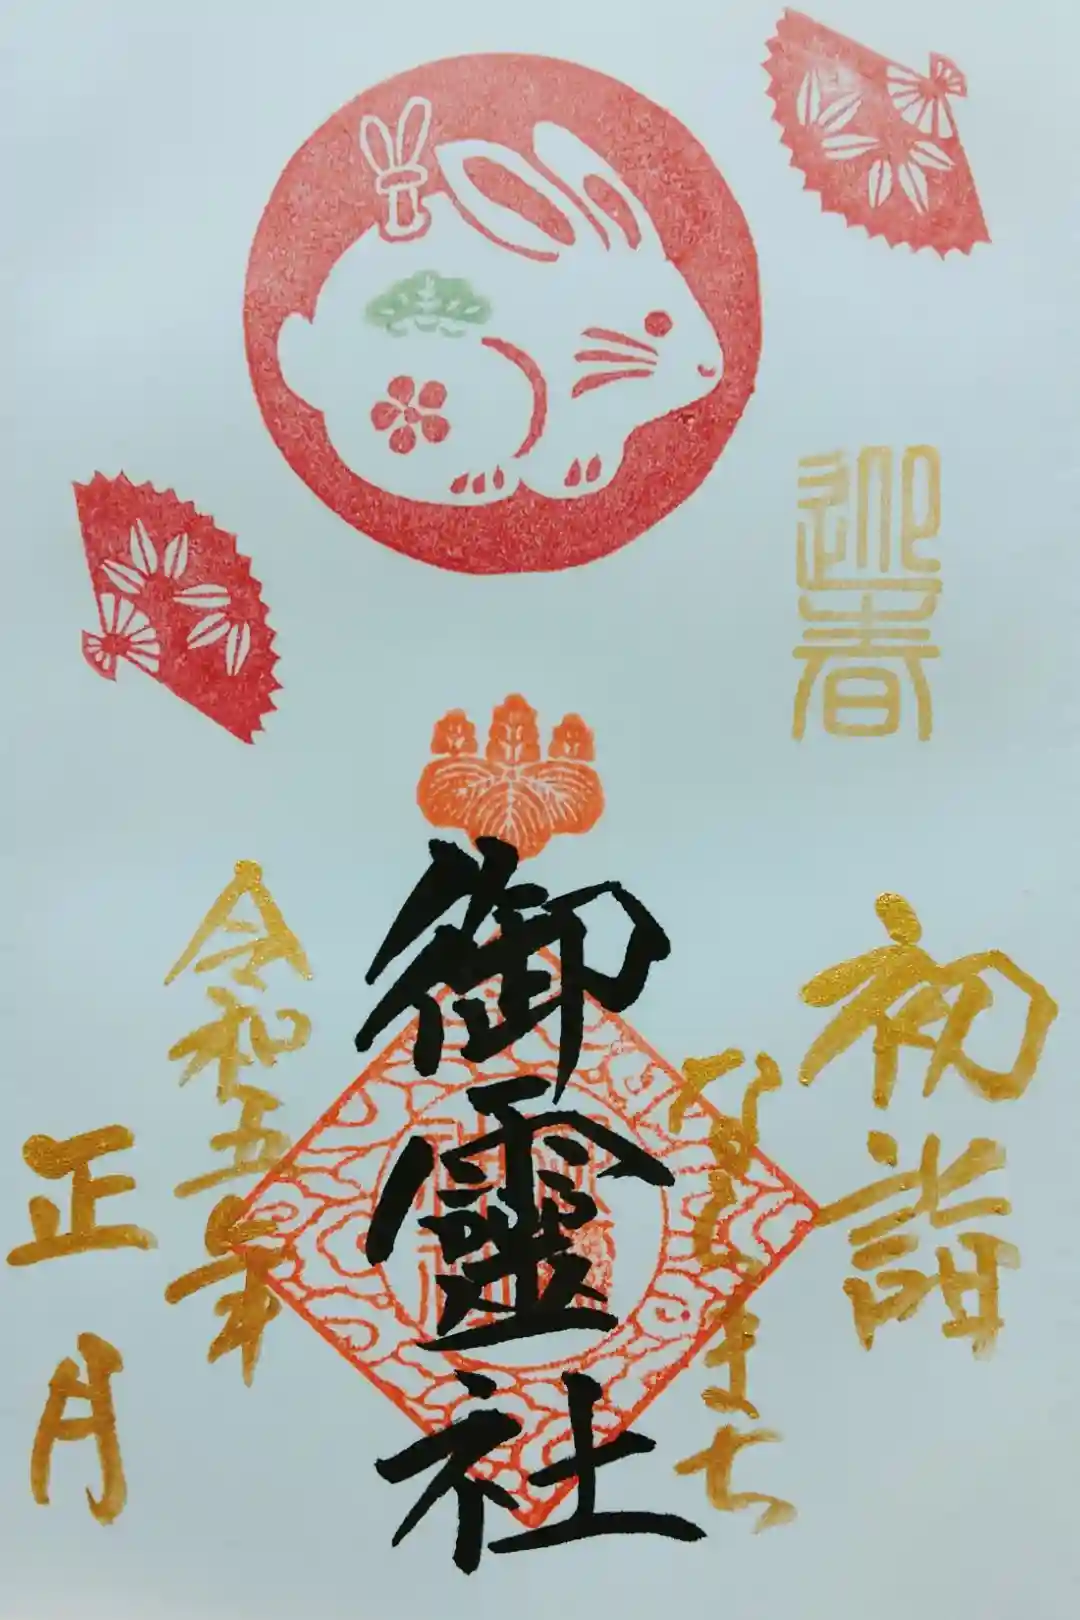 迎春
初詣
ならまち
御靈社
令和五年
正月